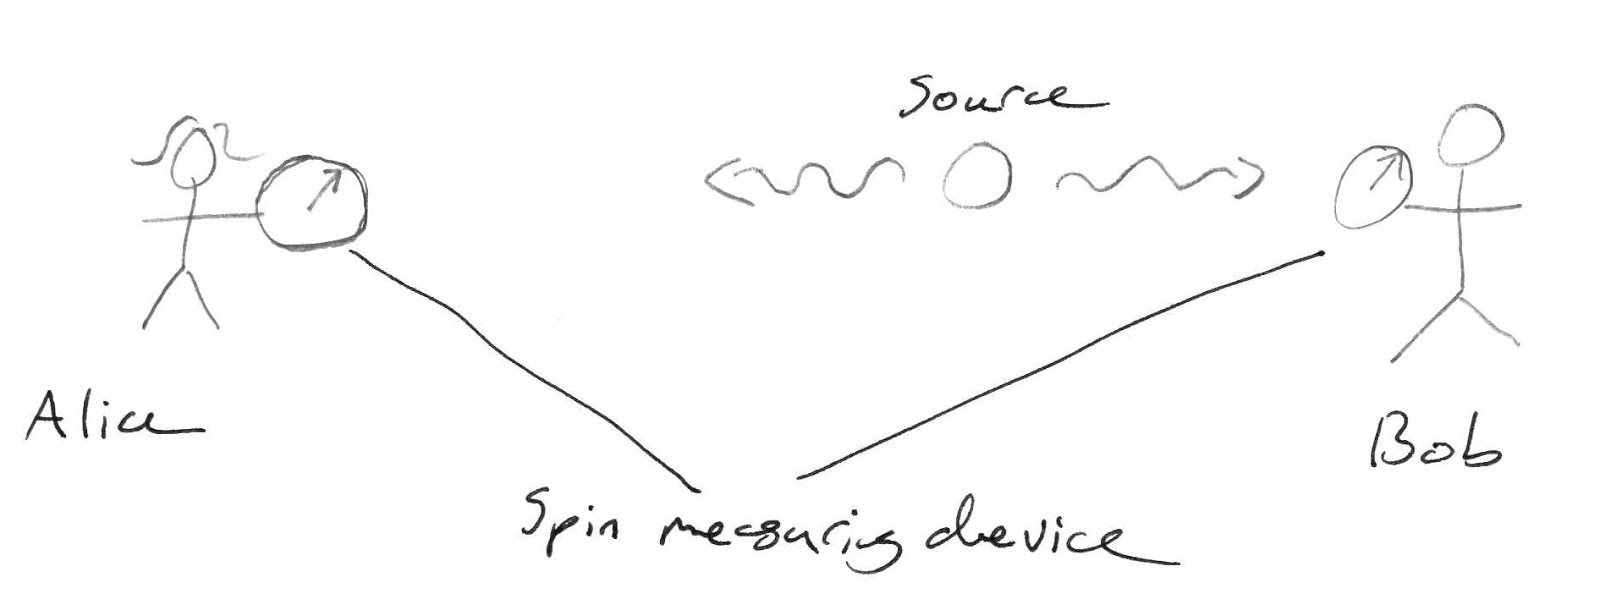 Source
Alice
Bob
Spin measuring device